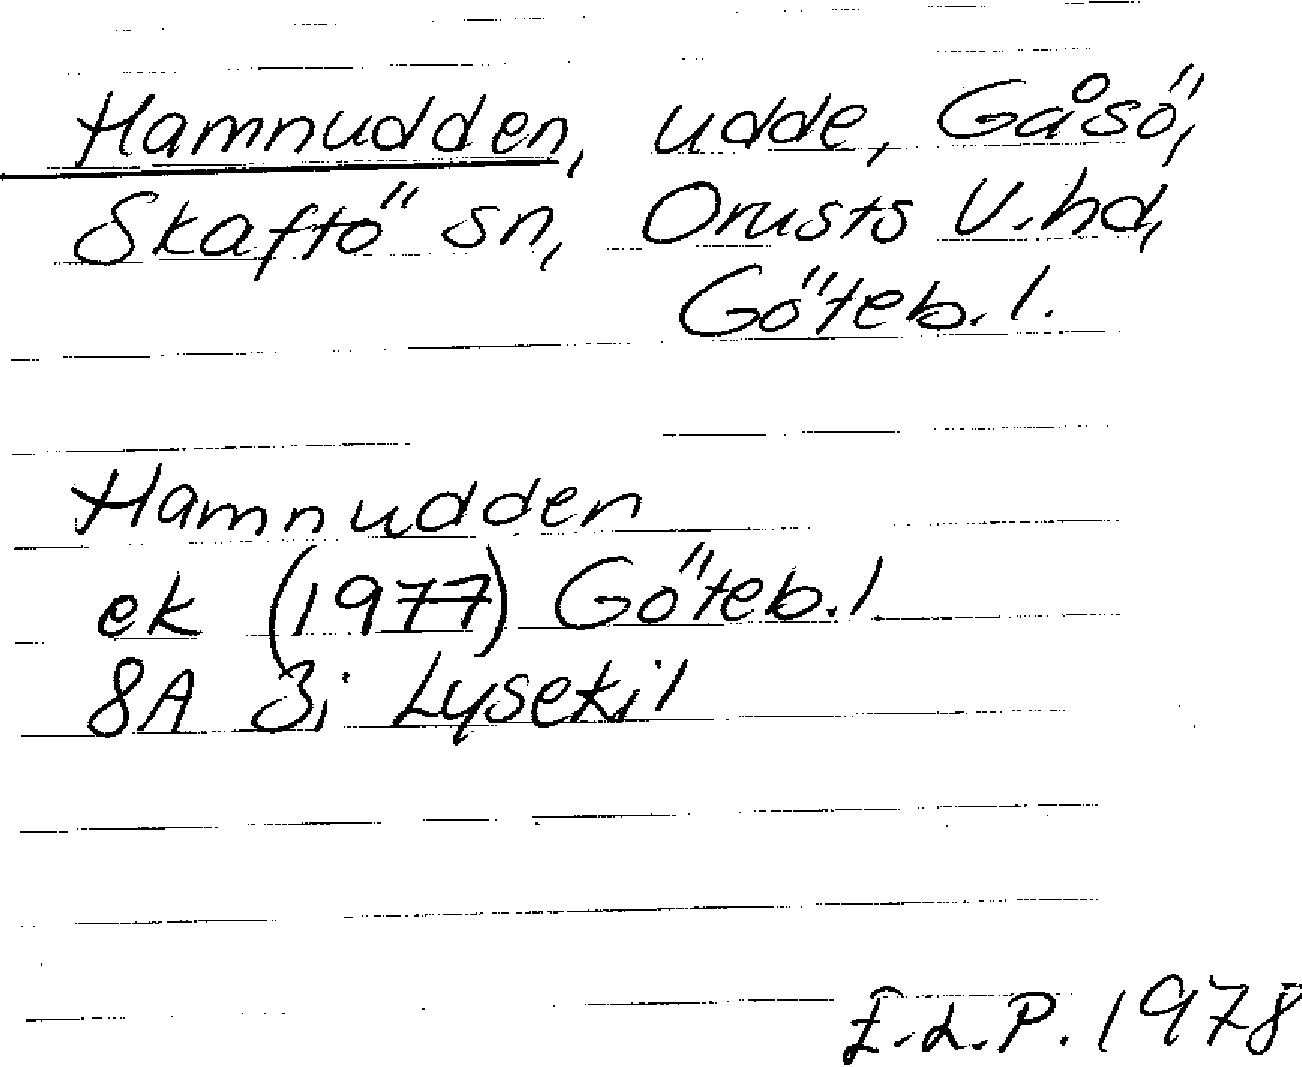 Hamnudden, udde, Gåsö,
Skaftö sn, Orusts V. hd,
Göteb. l.
Hamnudden
ek (1977) Göteb. l
8A 3i Lysekil
E.L.P. 1978